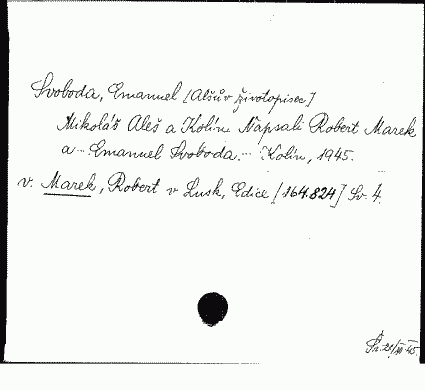 Svoboda, Emanuel [Alšův životopisec]
Mikoláš Aleš a Kolín. Napsali Robert Marek
a ... Emanuel Svoboda ... Kolín, 1945.
v. Marek, Robert v Lusk, Edice [164.824] Sv. 4.